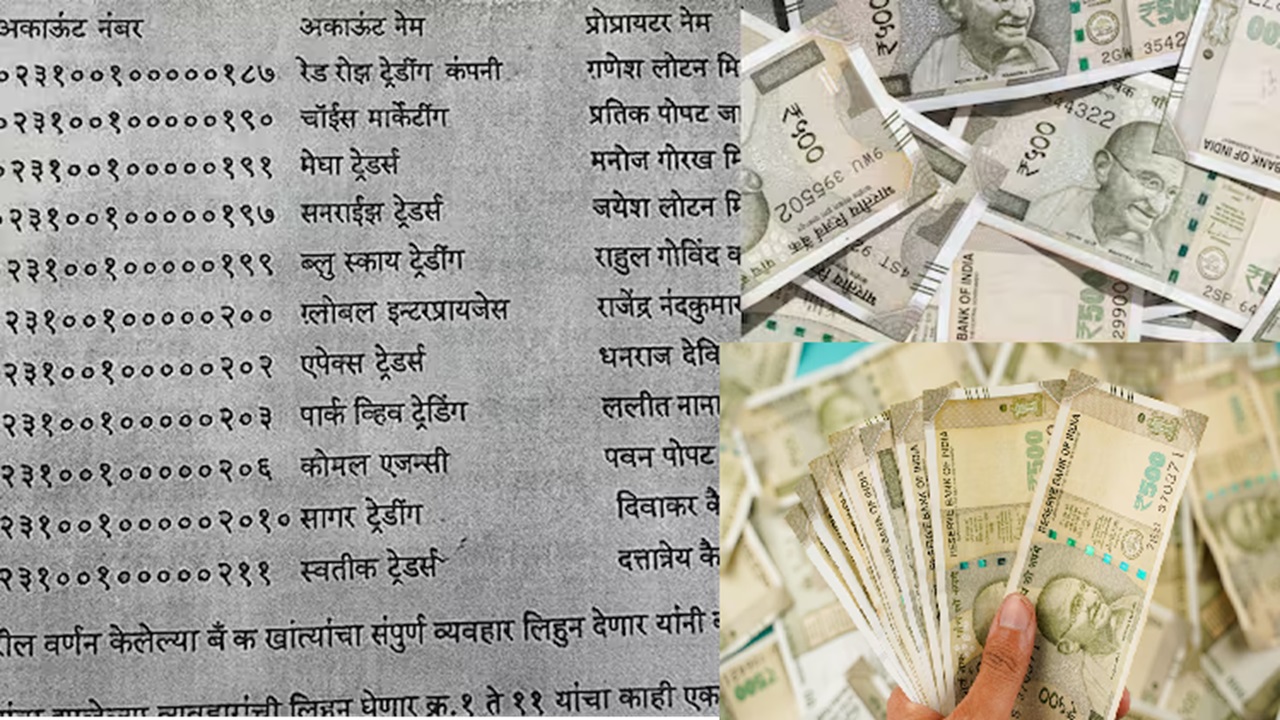 अकाऊंट नंबर अकाऊंट नेम प्रोप्रायटर नेम
०२३१००१०००००१८७ रेड रोझ ट्रेडींग कंपनी गणेश लोटन मि
०२३१००१०००००१९० चॉईस मार्केटींग प्रतिक पोपट जा
०२३१००१०००००१९१ मेघा ट्रेडर्स मनोज गोरख मि
०२३१००१०००००१९७ सनराईझ ट्रेडर्स जयेश लोटन मि
२३१००१०००००१९९ ब्लु स्काय ट्रेडींग राहुल गोविंद व
२३१००१०००००२०० ग्लोबल इन्टरप्रायजेस राजेंद्र नंदकुमार
२३१००१०००००२०२ एपेक्स ट्रेडर्स धनराज देवि
२३१००१०००००२०३ पार्क व्हिव ट्रेडिंग ललीत नाना
२३१००१०००००२०६ कोमल एजन्सी पवन पोपट
२३१००१०००००२०१० सागर ट्रेडींग दिवाकर कै
२३१००१०००००२११ स्वतीक ट्रेडर्स दत्तात्रेय कै
रील वर्णन केलेल्या बँक खांत्यांचा संपुर्ण व्यवहार लिहुन देणार यांनी
व्यवहारांची लिहन घेणार क्र.१ ते ११ यांचा काही एक
₹500
2GW 3542
₹500
9WU 395502
भारतीय रिज़र्व बैंक
44322
₹500
4ST 92
BANK OF INDIA
29900
2SP 64
BANK OF INDIA
RESERVE BANK OF INDIA
₹500
RESERVE BANK OF INDIA
₹500
570371
₹500